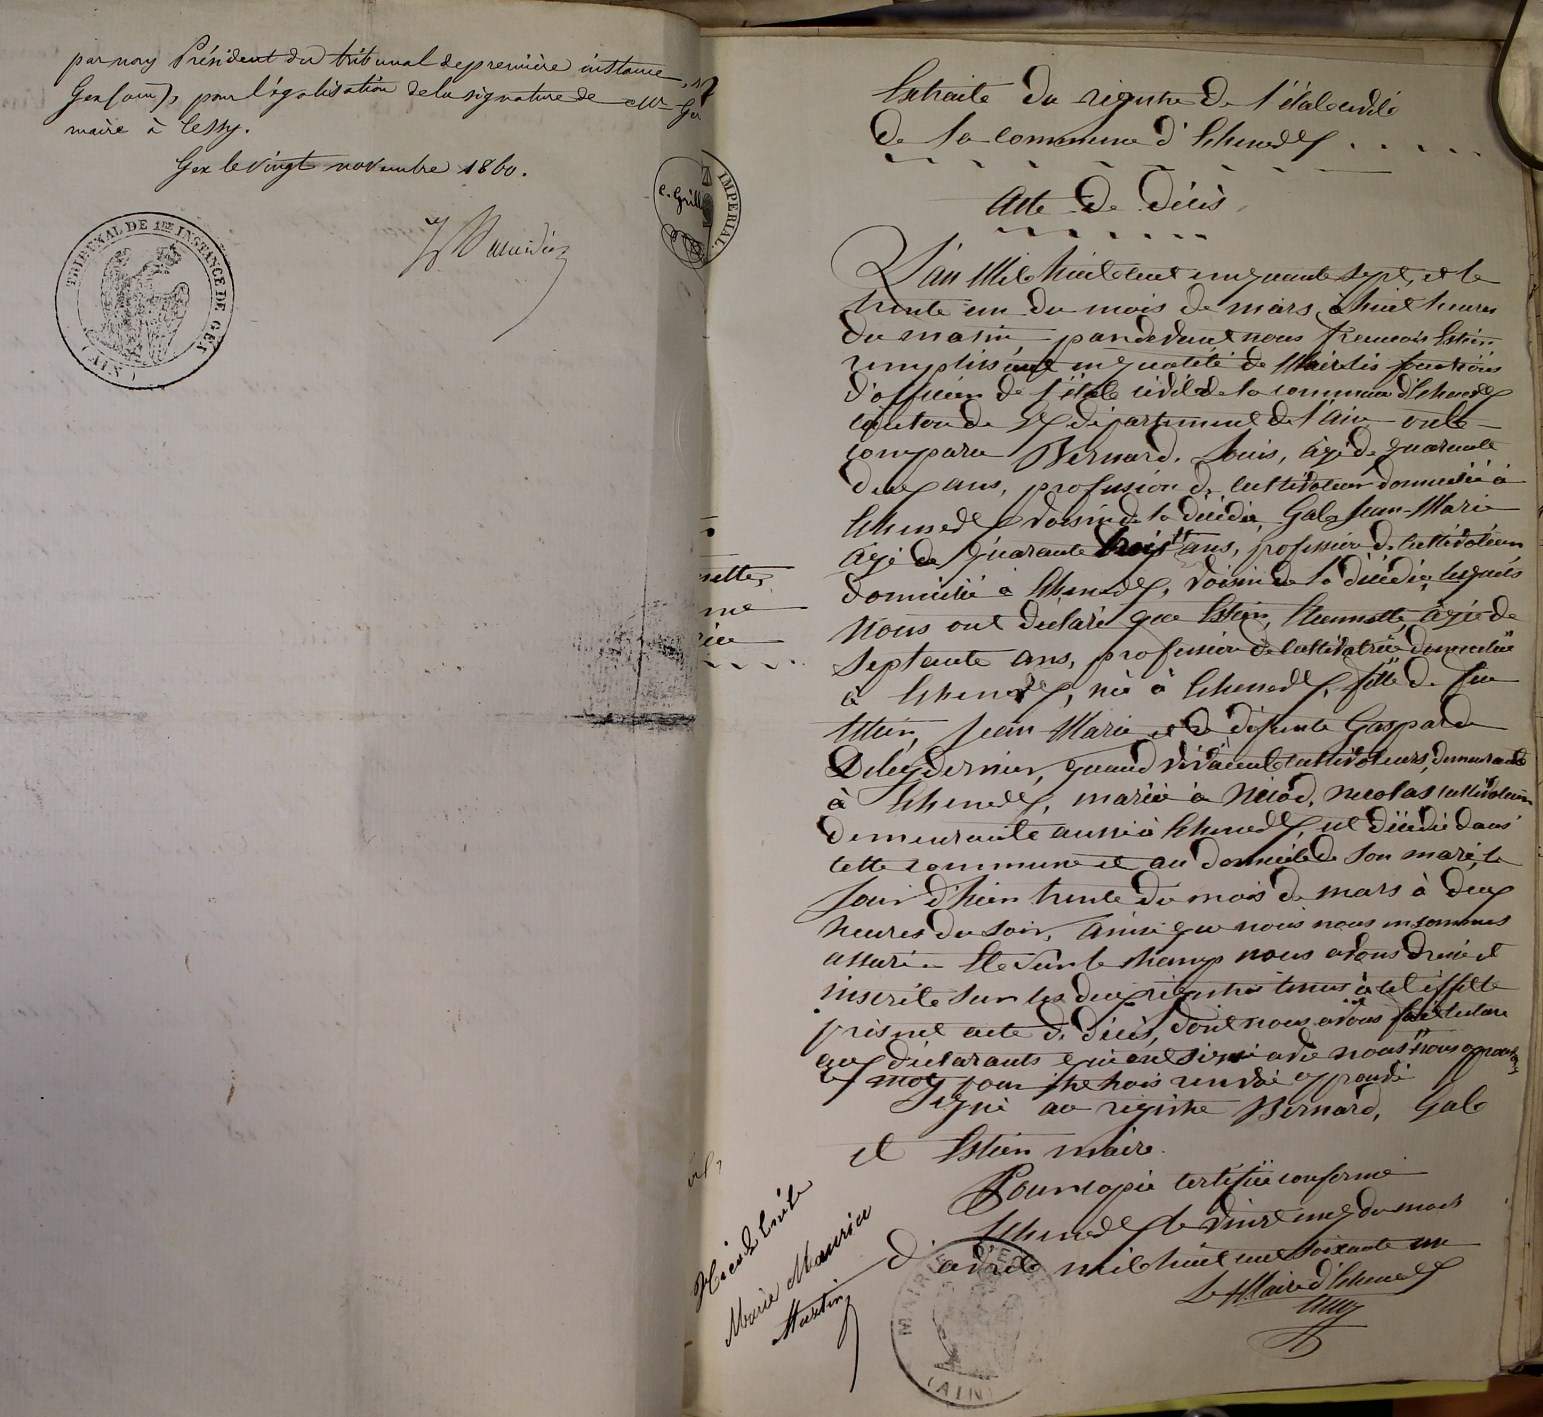 par nous Président du tribunal de première instance
Gex (ain), pour légalisation de la signature de Mr
maire à Cessy.
Gex le vingt novembre 1860.
TRIBUNAL DE 1ERE INSTANCE DE GEX
(AIN)
IMPERIAL.
nette,
me
Extraite du registre de l'état civile
de la commune d'Echenevex . . . . .
Acte de décès
L'an Mil huit cent cinquante sept, et le
trente un du mois de mars à huit heures
du matin, pardevant nous francois Estier
remplissant en qualité de Maire les fonctions
d'officier de l'état civil de la commune d'Echenevex
canton de Gex département de l'ain ont
comparu Bernard, Louis, âgé de quarante
deux ans, profession de cultivateur domicilié à
Echenevex voisin de la décédée, Galo Jean-Marie
âgé de quarante trois ans, profession de cultivateur
domicilié à Echenevex, voisin de la décédée, lesquels
nous ont déclaré que Estier, Etiennette, âgée de
septante ans, profession de cultivatrice domiciliée
à Echenevex, née à Echenevex, fille de feu
Estier, Jean-Marie et de défunte Gasparde
quand vivaient cultivateurs, demeurants
à Echenevex, mariée à Nicod, Nicolas cultivateur
demeurante aussi à Echenevex, est décédée dans
cette commune et au domicile de son mari, le
jour d'hier trente du mois de mars à deux
heures du soir, ainsi que nous nous en sommes
assuré Et sur le champ nous avons dressé et
inscrite sur les deux registres tenus à cet effette
présent acte de décès, dont nous avons fait lecture
aux déclarants qui ont signé avec nous nous approuvons
le mot pour approuvé
Signé au registre Bernard, Galo
et Estier maire.
Pour copie certifiée conforme
Echenevex le vingt cinq du mois
d'avril mil huit cent soixante un
Le Maire d'Echenevex
Marie Maurice
Martin
MAIRIE D'ECHE
(AIN)